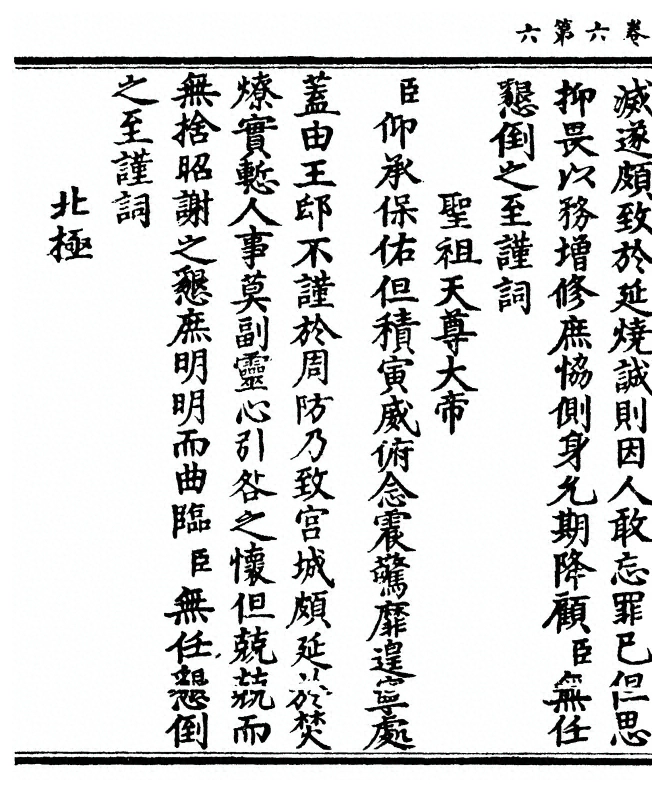 卷六第六
滅遂頗致於延燒誠則因人敢忘罪已但思
抑畏以務增修庶恊側身允期降顧臣無任
懇倒之至謹詞
聖祖天尊大帝
臣仰承保佑但積寅威俯念震驚靡遑寧處
蓋由王邸不謹於周防乃致宮城頗延於焚
燎實慙人事莫副靈心引咎之懷但兢兢而
無捨昭謝之懇庶明明而曲臨臣無任懇倒
之至謹詞
北極